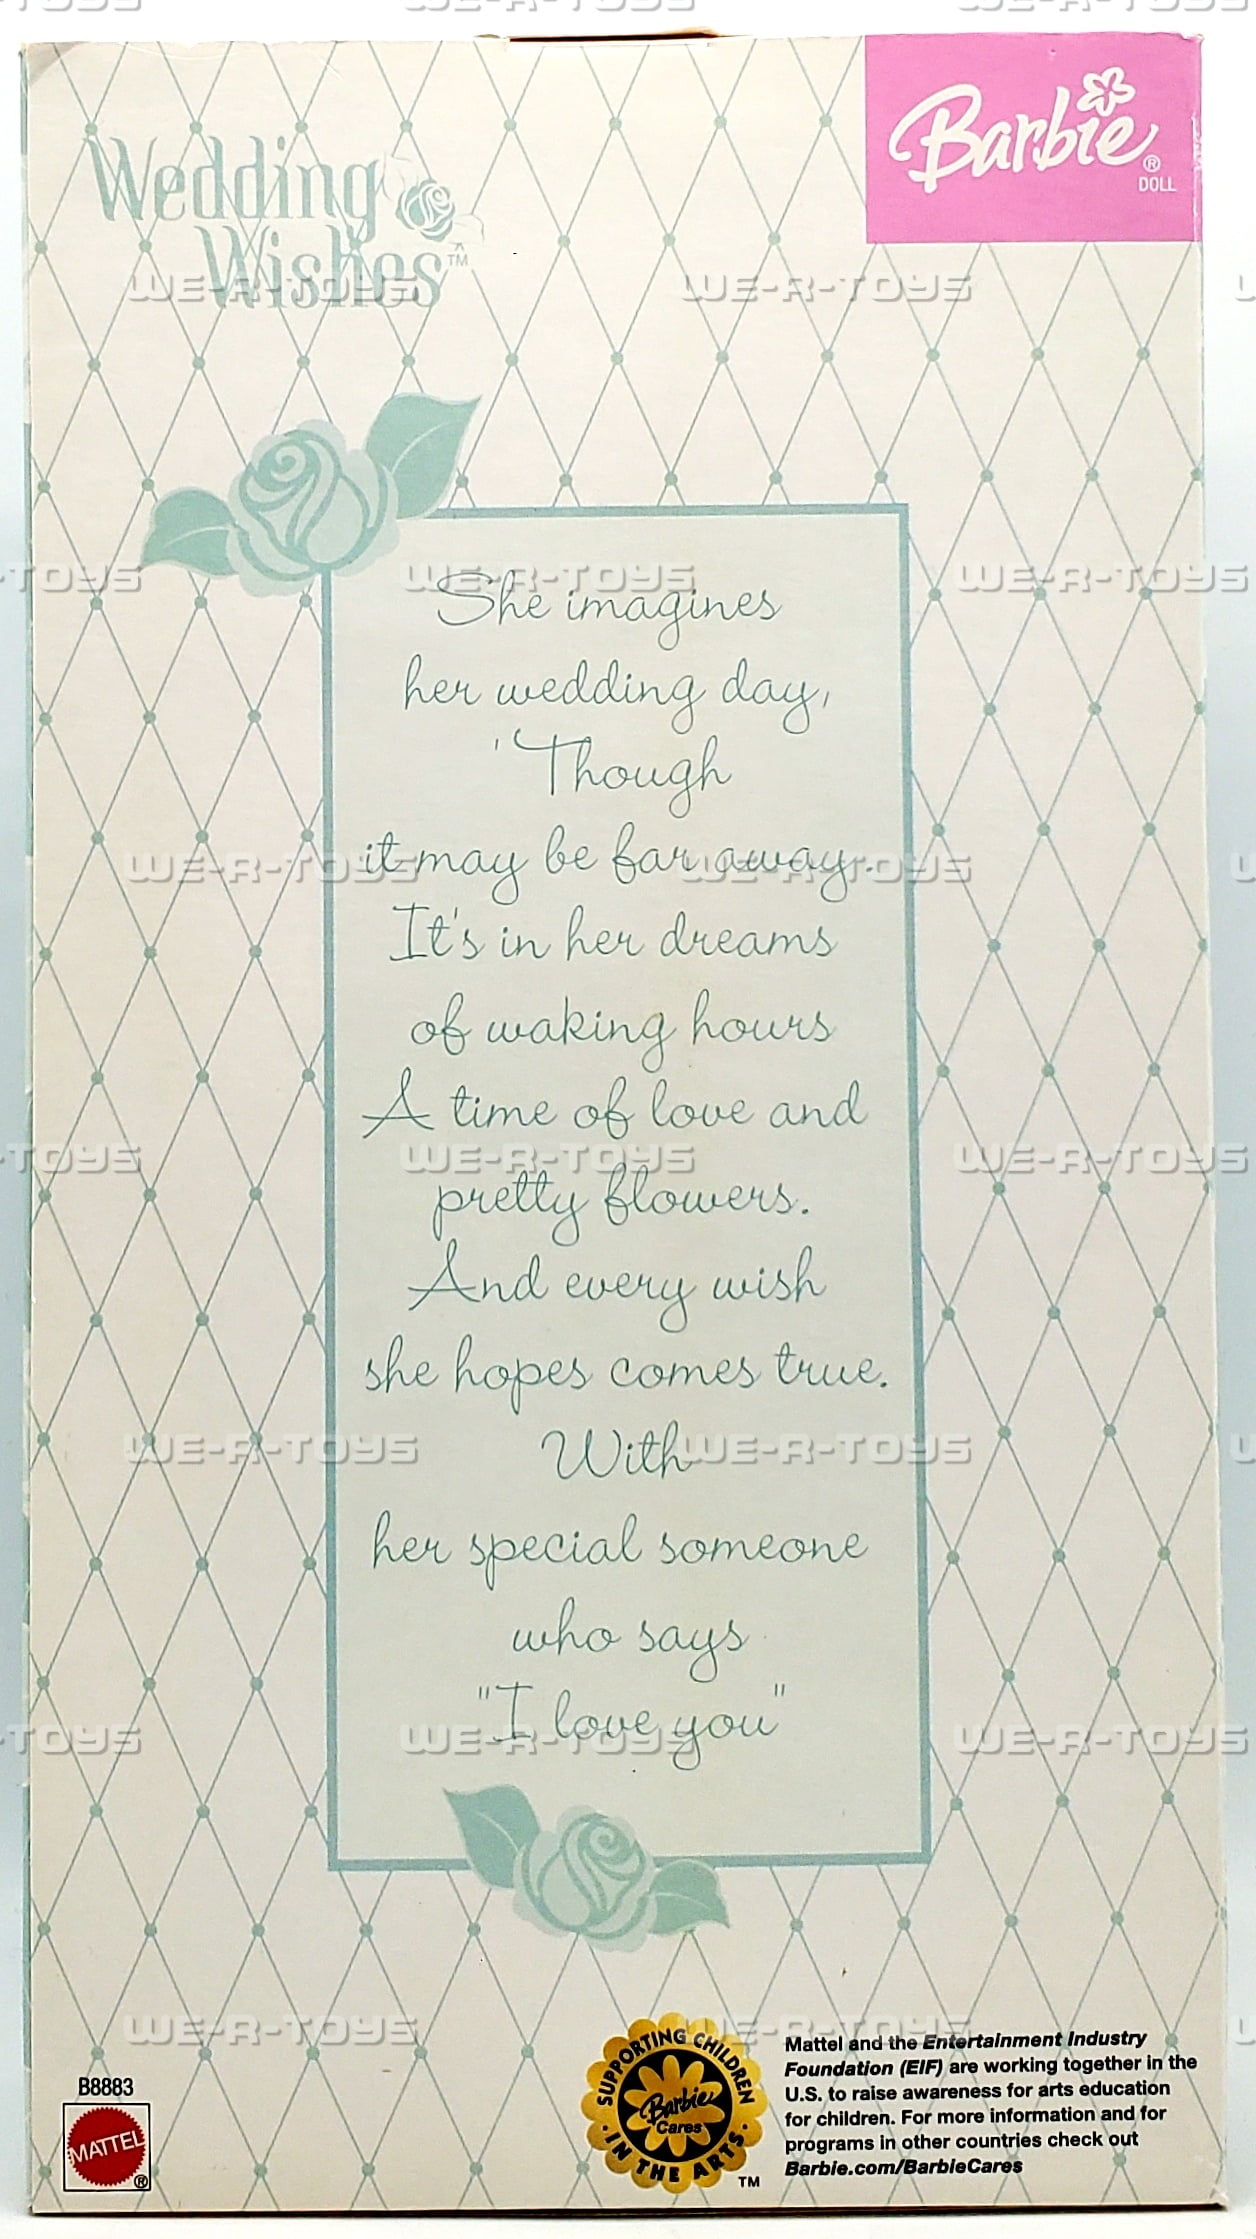 Wedding
Wishes™
Barbie®
DOLL
She imagines
her wedding day,
'Though
it may be far away.
It's in her dreams
of waking hours
A time of love and
pretty flowers.
And every wish
she hopes comes true.
With
her special someone
who says
"I love you"
B8883
MATTEL®
SUPPORTING CHILDREN
Barbie
Cares
· IN THE ARTS ·
TM
Mattel and the Entertainment Industry
Foundation (EIF) are working together in the
U.S. to raise awareness for arts education
for children. For more information and for
programs in other countries check out
Barbie.com/BarbieCares
WE-R-TOYS